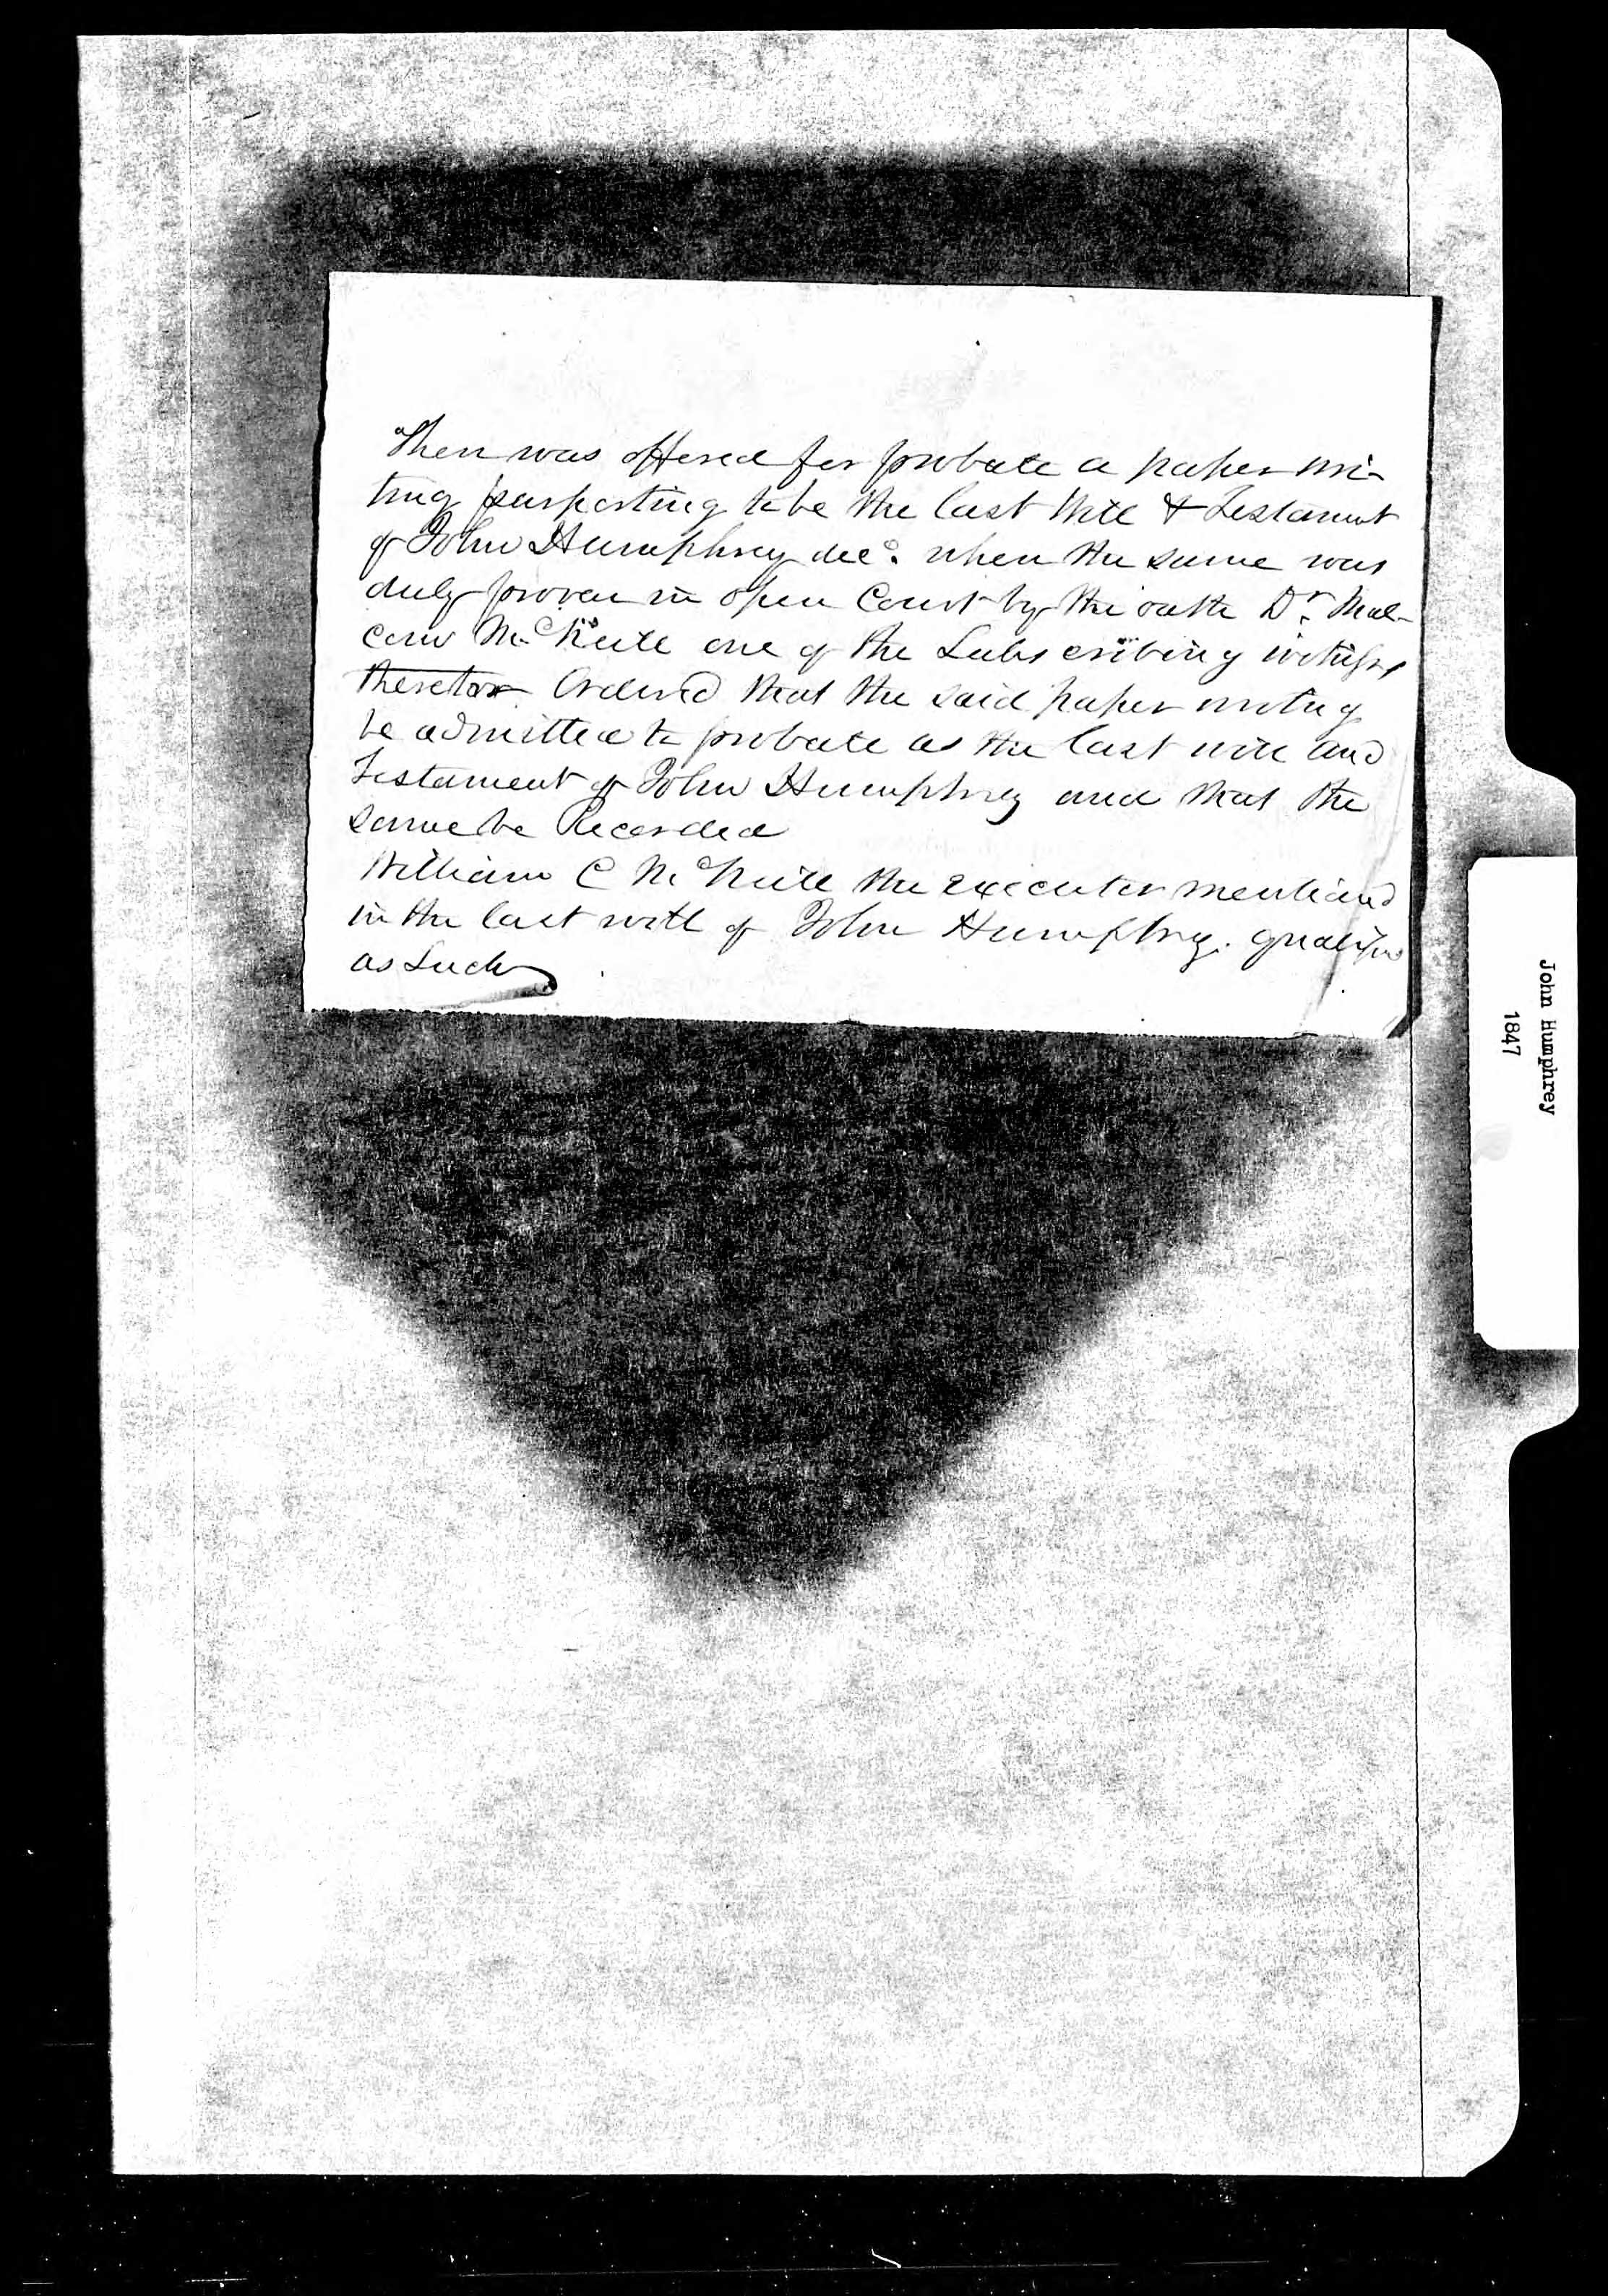 Then was offered for probate a paper wri-
ting purporting to be the last Will & Testament
of John Humphrey decd. when the same was
duly proven in open Court by the oath Dr. Mal-
com McNeill one of the Subscribing witness
thereto Ordered that the said paper writing
be admitted to probate as the last will and
Testament of John Humphrey and that the
same be Recorded
William C McNeill the executor mentiond
in the last will of John Humphrey. qualified
as Such
John Humphrey
1847